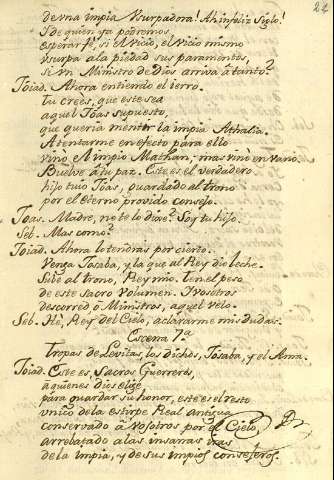 24
de una impia Vsurpadora! Ah infeliz Siglo!
I de quien ya podremos
esperar fé, si el Vicio, el Vicio mismo
vsurpa a la piedad sus paramentos,
si vn Ministro de Dios arriva à tanto?
Joiad. Ahora entiendo el ierro.
tu crees, que este sea
aquel Joas supuesto,
que queria mentir la impia Athalia.
A tentarme en efecto para ello
vino el impio Mathan; mas vino en vano.
Buelve à tu paz. Este es el verdadero
hijo tuio Joas, guardado al trono
por el eterno provido consejo.
Joas. Madre, no te lo dixe? Soy tu hijo.
Seb. Mas como?
Joiad. Ahora lo tendras por cierto.
Venga Josaba, y la que al Rey dio leche.
Sube al trono, Rey mio. ten el peso
de este sacro volumen. I vosotros
descorred ò Ministros, aquel velo.
Seb. Hè, Rey del Cielo, aclararme mis dudas.
Escena 7a
Tropas de Levitas, los dichos, Josaba, y el Ama.
Joiad. Este es, Sacros Guerreros,
a quienes dios elige,
para guardar su honor, este es el resto
vnico de la estirpe Real antigua
conservado à vosotros por el Cielo,
arrebatado a las insanas iras
de la impia, y de sus impios consejeros.